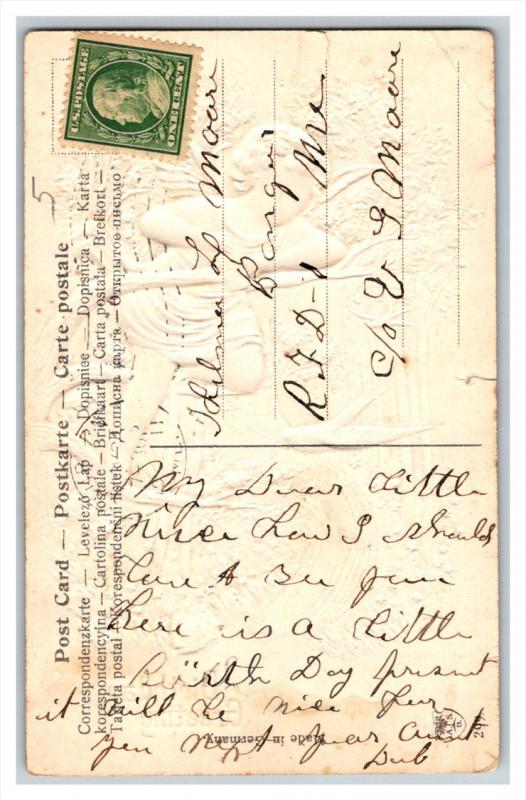 U.S. POSTAGE
ONE CENT
Post Card — Postkarte — Carte postale
Correspondenzkarte — Levelező Lap — Dopisnice — Dopisnica — Karta
korespondencyjna — Cartolina postale — Briefkaart — Carta postala — Brefkort —
Tarjeta postal — Korespondenční lístek — Открытое письмо
Thelma L Moore
Bangor
R.F.D-1 Me
c/o E G Moore
My Dear Little
Niece how I should
Love to See you
here is a Little
Birth Day present
it will be nice for
you
Aunt
Made in Germany
5